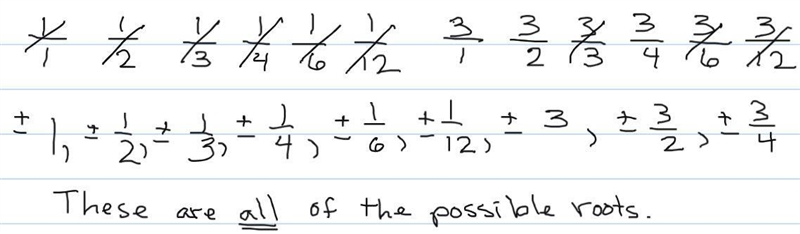 1/1 1/2 1/3 1/4 1/6 1/12 3/1 3/2 3/3 3/4 3/6 3/12
± 1, ± 1/2, ± 1/3, ± 1/4, ± 1/6, ± 1/12, ± 3, ± 3/2, ± 3/4
These are all of the possible roots.